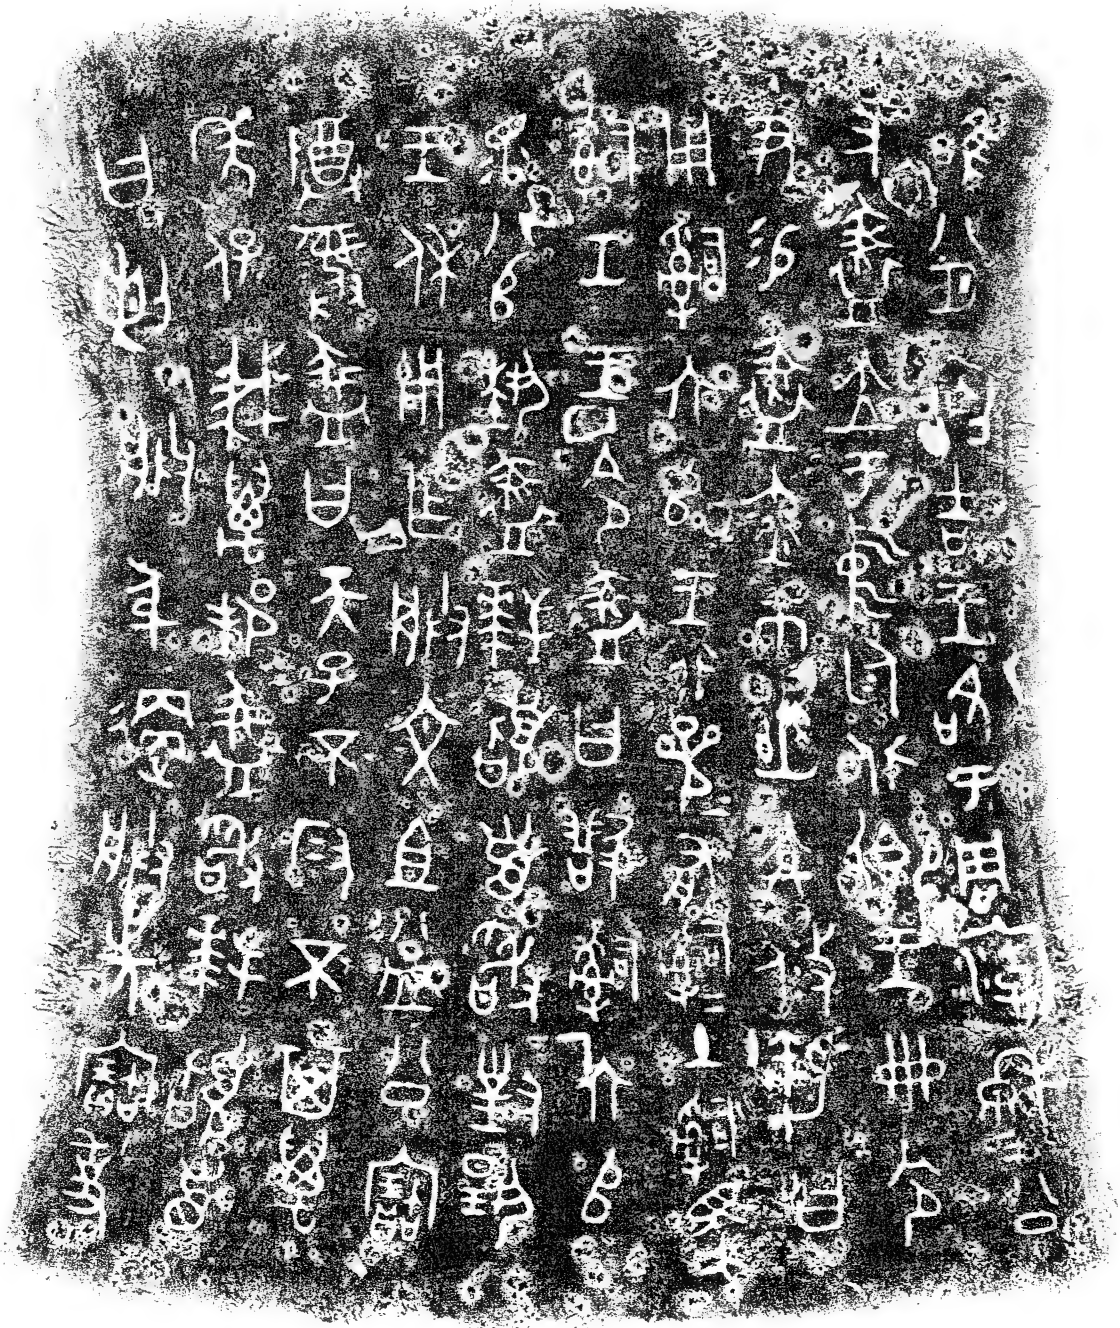 唯八月初吉王各于周廟穆公
右盠立于中廷北鄉王冊令尹
易盠赤巿幽亢攸勒曰
用𤔲六𠂤王行參有𤔲𤔲土𤔲馬
𤔲工王令盠曰𤔲𤔲六𠂤
眔八𠂤埶盠拜𩒨首敢對揚
王休用乍朕文且益公寶
尊彝盠曰天子不叚不其萬
年保我萬邦盠敢拜𩒨首
曰剌剌朕身更朕先寶事